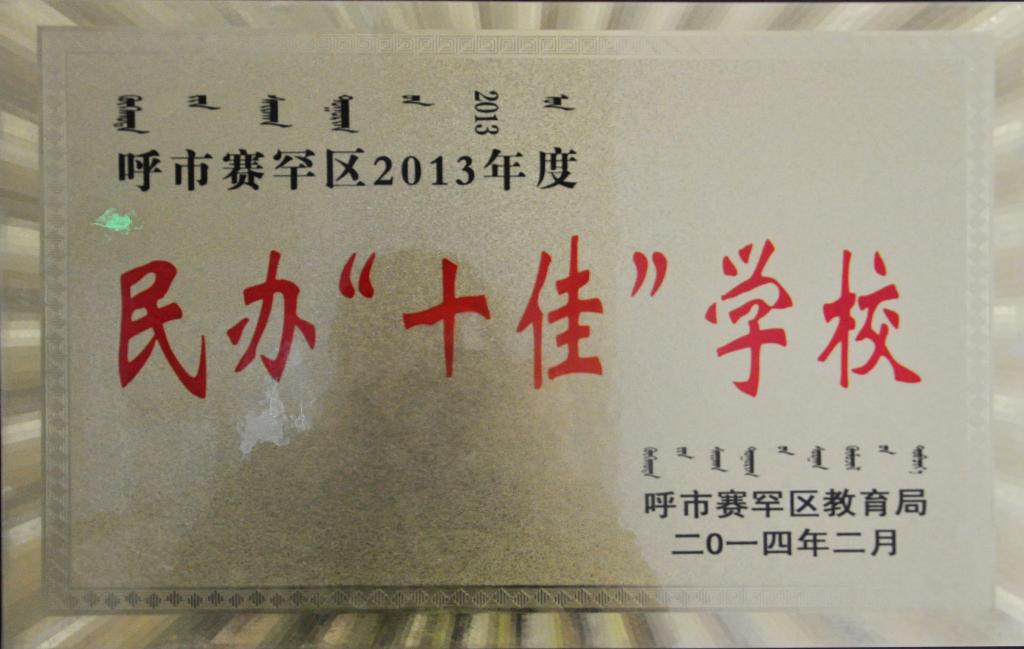 2013
呼市赛罕区2013年度
民办“十佳”学校
呼市赛罕区教育局
二0一四年二月